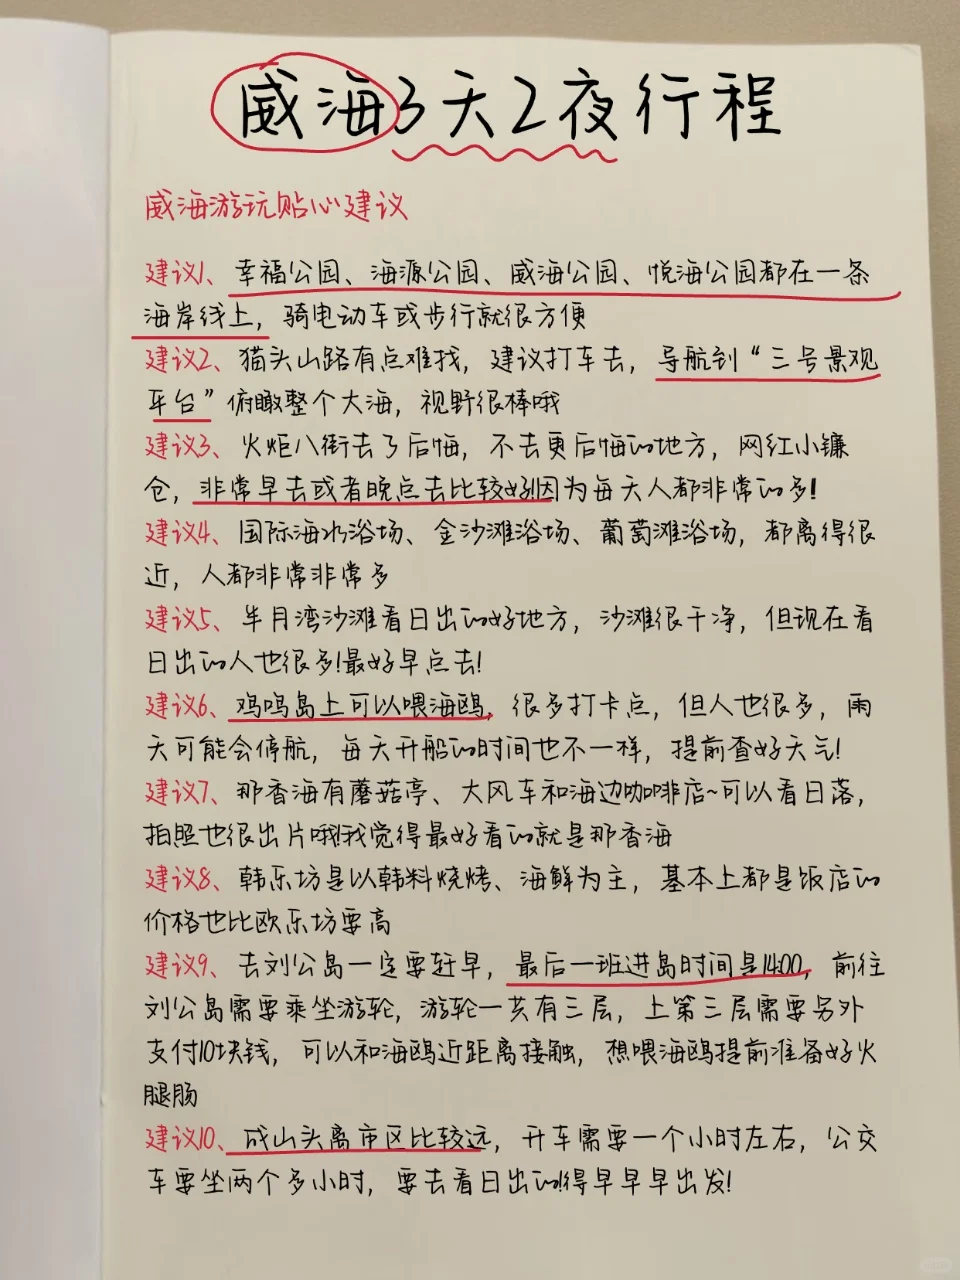 威海3天2夜行程
威海游玩贴心建议
建议1、幸福公园、海源公园、威海公园、悦海公园都在一条
海岸线上，骑电动车或步行就很方便
建议2、猫头山路有点难找，建议打车去，导航到“三号景观
平台”俯瞰整个大海，视野很棒哦
建议3、火炬八街去了后悔，不去更后悔的地方，网红小镰
仓，非常早去或者晚点去比较好!因为每天人都非常的多!
建议4、国际海水浴场、金沙滩浴场、葡萄滩浴场，都离得很
近，人都非常非常多
建议5、半月湾沙滩看日出的好地方，沙滩很干净，但现在看
日出的人也很多!最好早点去!
建议6、鸡鸣岛上可以喂海鸥，很多打卡点，但人也很多，雨
天可能会停航，每天开船的时间也不一样，提前查好天气!
建议7、那香海有蘑菇亭、大风车和海边咖啡店~可以看日落，
拍照也很出片哦!我觉得最好看的就是那香海
建议8、韩乐坊是以韩料烧烤、海鲜为主，基本上都是饭店的
价格也比欧乐坊要高
建议9、去刘公岛一定要赶早，最后一班进岛时间是14:00，前往
刘公岛需要乘坐游轮，游轮一共有三层，上第三层需要另外
支付10块钱，可以和海鸥近距离接触，想喂海鸥提前准备好火
腿肠
建议10、成山头离市区比较远，开车需要一个小时左右，公交
车要坐两个多小时，要去看日出的!得早早早出发!